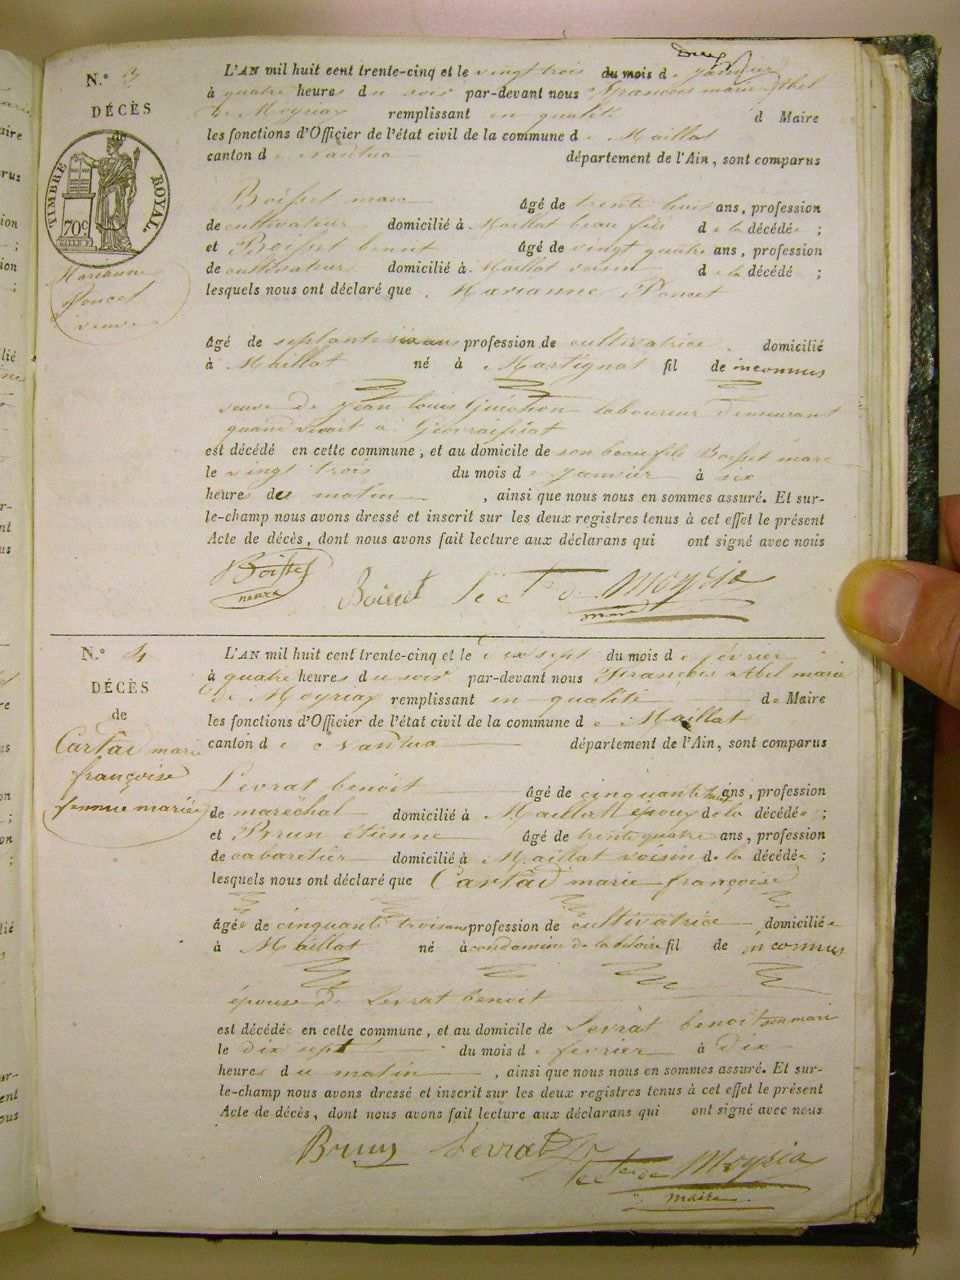 N.° 3
DÉCÈS
TIMBRE ROYAL.
70c
Marianne
Poncet
veuve
L'AN mil huit cent trente-cinq et le vingt trois du mois de janvier
à quatre heures du soir par-devant nous françois marie Abel
de Moyria remplissant en qualité d Maire
les fonctions d'Officier de l'état civil de la commune de Maillat
canton de nantua département de l'Ain, sont comparus
Boisset marc âgé de trente huit ans, profession
de cultivateur domicilié à Maillat beau fils de la décédée ;
et Boisset benoit âgé de vingt quatre ans, profession
de cultivateur domicilié à Maillat voisin de la décédé ;
lesquels nous ont déclaré que Marianne Poncet
âgé de septante six ans profession de cultivatrice domicilié
à Maillat né à Martignat fil de inconnus
veuve de jean Louis laboureur demeurant
quand vivait à
est décédé en cette commune, et au domicile de son beau fils Boisset marc
le vingt trois du mois de janvier à six
heures du matin , ainsi que nous nous en sommes assuré. Et sur-
le-champ nous avons dressé et inscrit sur les deux registres tenus à cet effet le présent
Acte de décès, dont nous avons fait lecture aux déclarans qui ont signé avec nous
Boisset
Boisset le Cte de Moyria
maire
N.° 4
DÉCÈS
de
Cartad marie
françoise
femme mariée
L'AN mil huit cent trente-cinq et le dix sept du mois de février
à quatre heures du soir par-devant nous françois Abel marie
de Moyria remplissant en qualité de Maire
les fonctions d'Officier de l'état civil de la commune de Maillat
canton de nantua département de l'Ain, sont comparus
Levrat benoit âgé de cinquante ans, profession
de maréchal domicilié à Maillat époux de la décédée ;
et Brun etienne âgé de trente quatre ans, profession
de cabaretier domicilié à Maillat voisin de la décédée ;
lesquels nous ont déclaré que Cartad marie françoise
âgée de cinquante trois ans profession de cultivatrice domiciliée
à Maillat né à condamine de la doire fil de inconnus
épouse de Levrat benoit
est décédée en cette commune, et au domicile de Levrat benoit son mari
le dix sept du mois de fevrier à dix
heures du matin , ainsi que nous nous en sommes assuré. Et sur-
le-champ nous avons dressé et inscrit sur les deux registres tenus à cet effet le présent
Acte de décès, dont nous avons fait lecture aux déclarans qui ont signé avec nous
Brun Levrat
le Cte de Moyria
maire